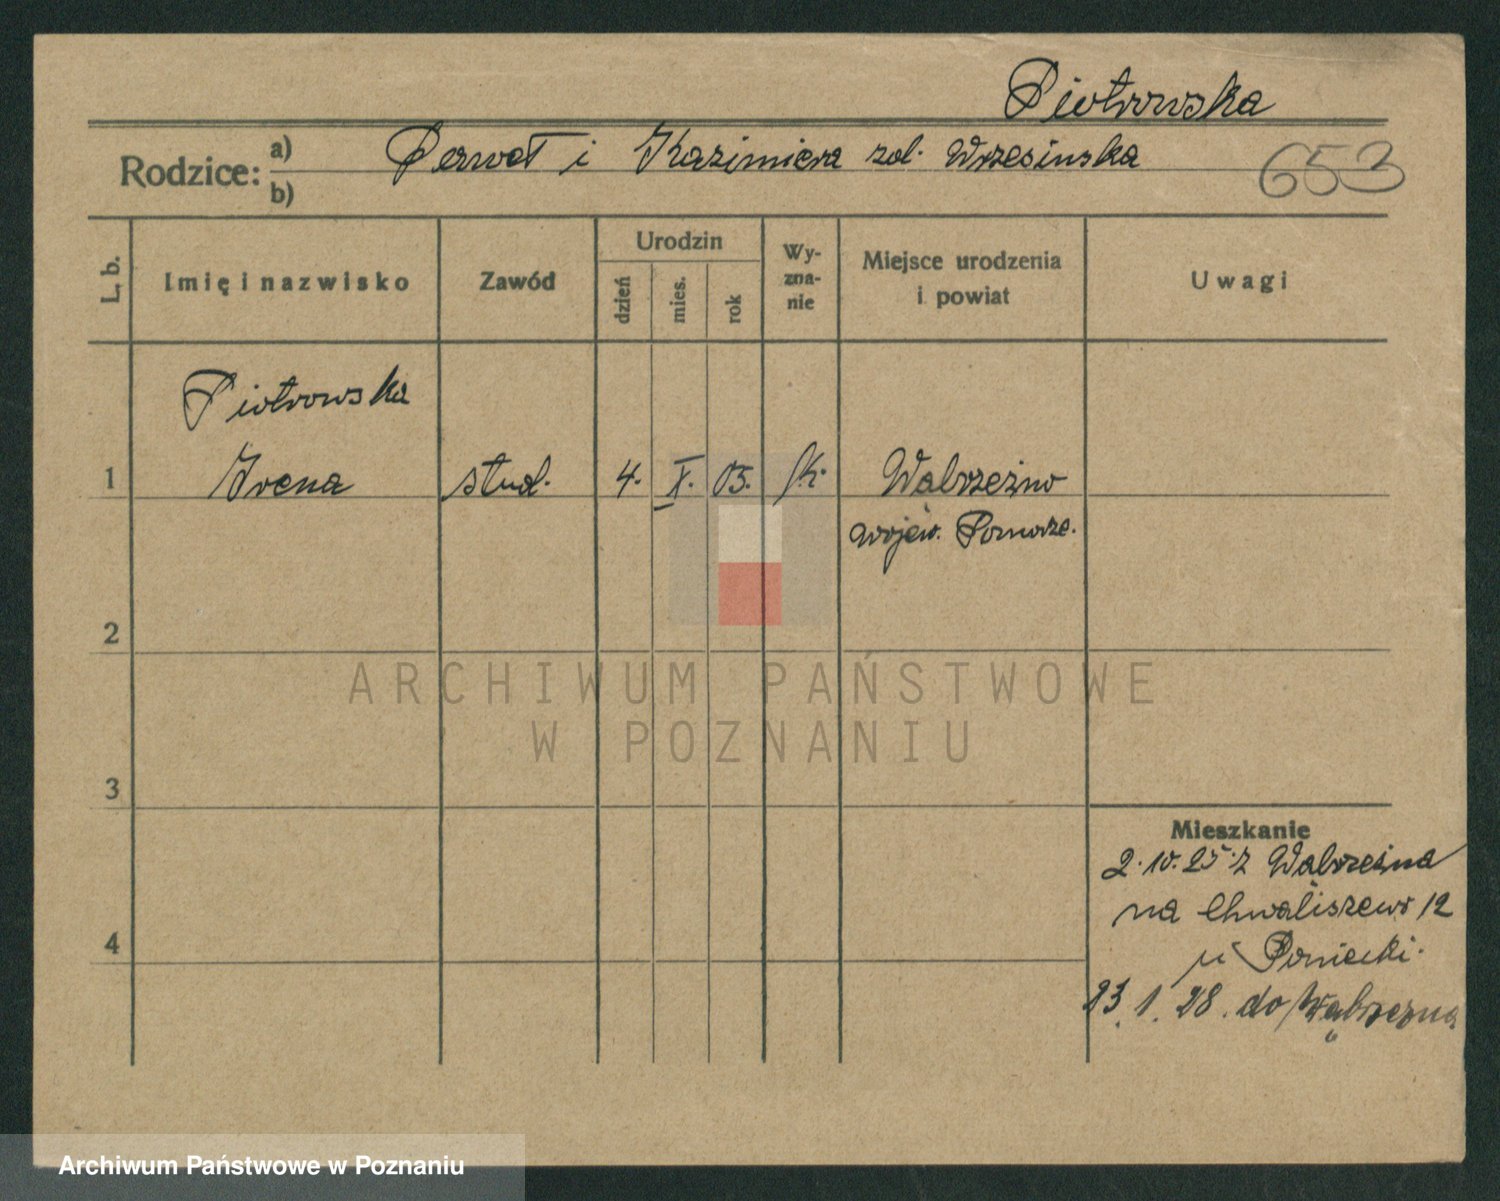 Piotrowska
Rodzice: a) i Kazimiera zd. Wrzesinska
b)
653
L. b.
Imię i nazwisko
Zawód
Urodzin
dzień
mies.
rok
Wy-
zna-
nie
Miejsce urodzenia
i powiat
Uwagi
Piotrowska
1 Irena stud. 4. X. 05. Wąbrzeźno
wojew. Pomorze.
2
3
4
Mieszkanie
2.10.25 z Wąbrzeźna
na Chwaliszewo 12
u Poniecki.
23.1.28. do Wąbrzezna
ARCHIWUM PAŃSTWOWE
W POZNANIU
Archiwum Państwowe w Poznaniu